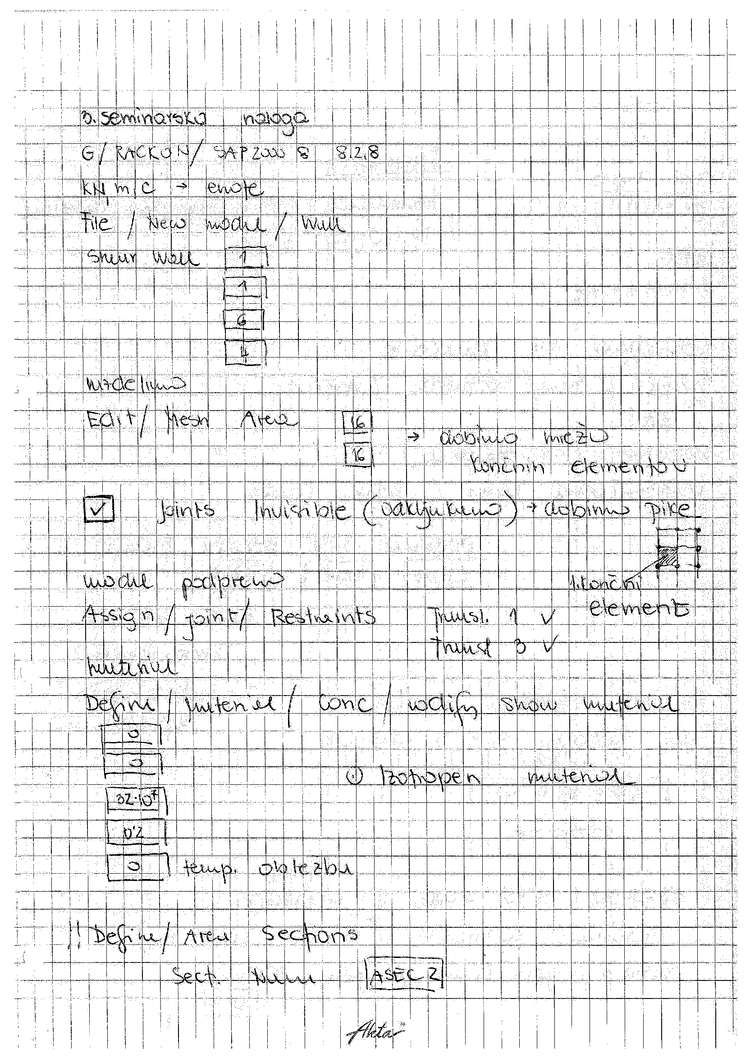 3. seminarska naloga
G/ RACKUN/ SAP2000 8 8.2.8
kN, m, C → enote
File / New model / Wall
Shear Wall 1
1
6
4
mrdelimo
Edit/ Mesh Area 16 → dobimo mrežo
16 končnih elementov
✓ Joints Invisible (odkljukamo) → dobimo pike
1. končni
element
model podpremo
Assign / joint/ Restraints Transl. 1 ✓
Transl 3 ✓
material
Define / material / conc / modify show material
0
0 ⊙ Izotropen material
32·10⁷
0'2
0 temp. obtežba
!! Define/ Area Sections
Sect. Name ASEC 2